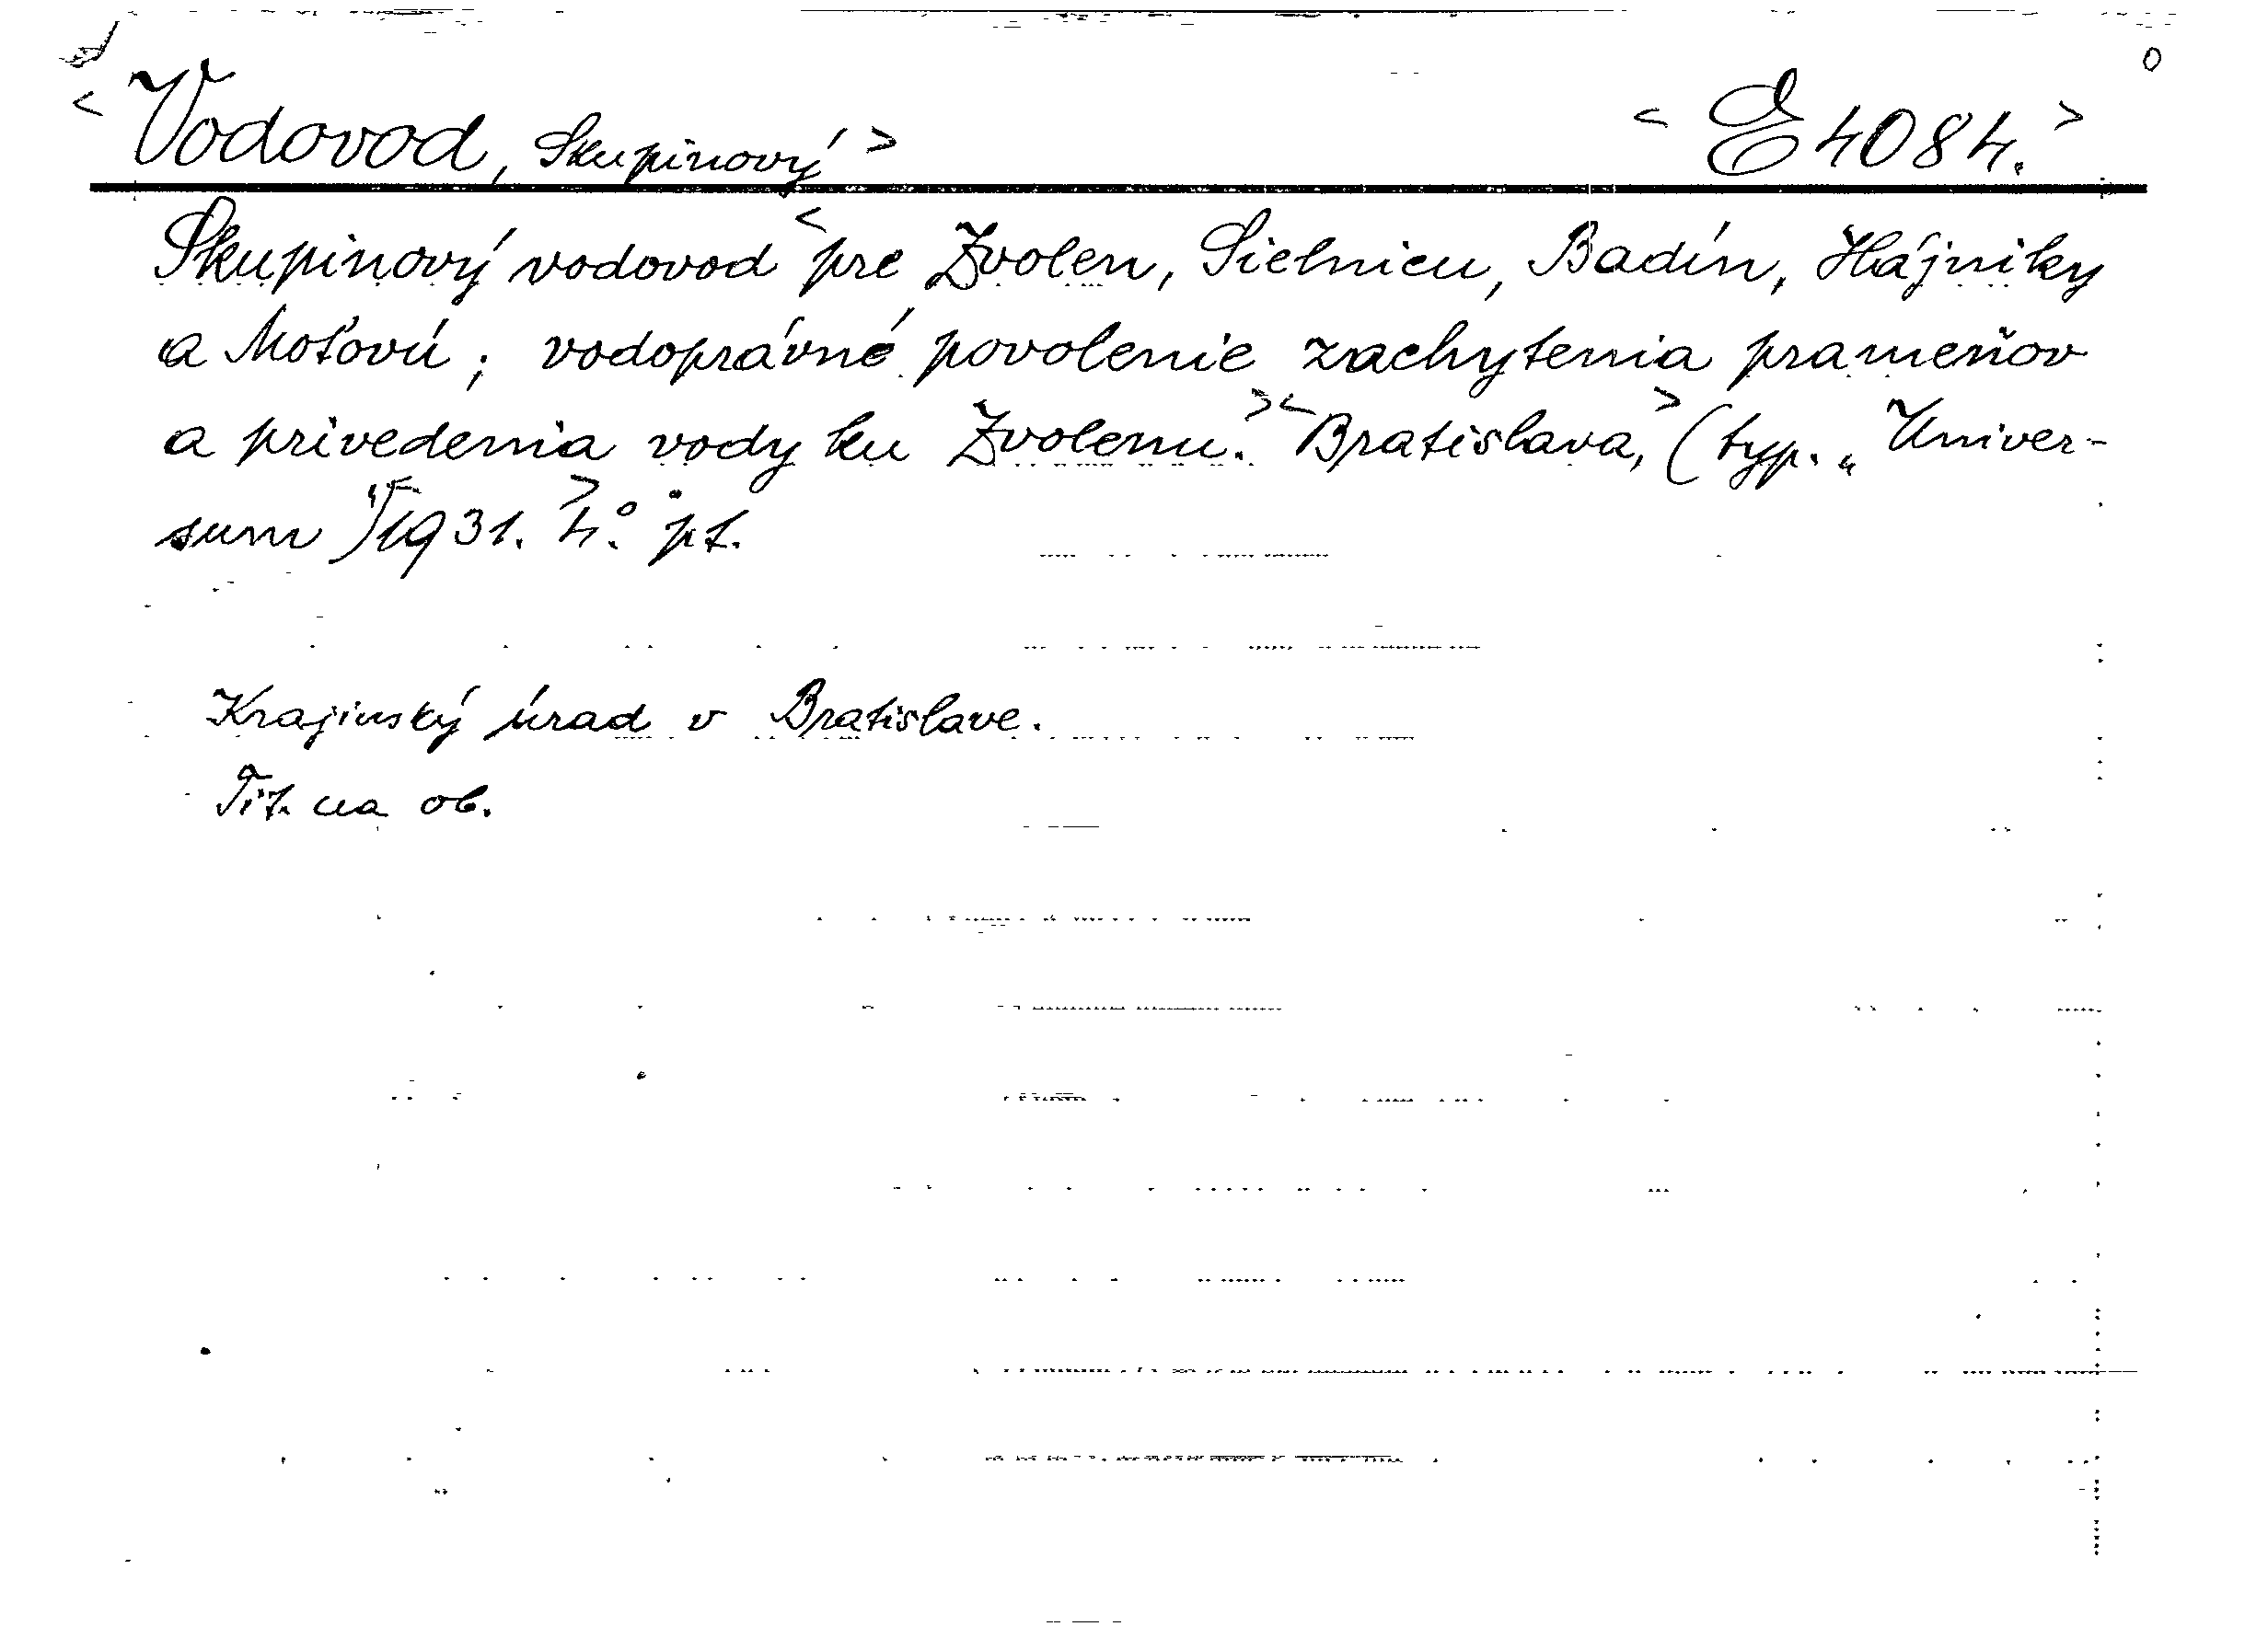 <Vodovod, Skupinový> <E 4084.>
Skupinový vodovod <pre Zvolen, Sielnicu, Badín, Hájniky
a Moťovú; vodoprávné povolenie zachytenia prameňov
a privedenia vody ku Zvolenu.><Bratislava,> (typ. „Univer-
sum") <1931.> 4° pt.
Krajinský úrad v Bratislave.
Tit. na ob.